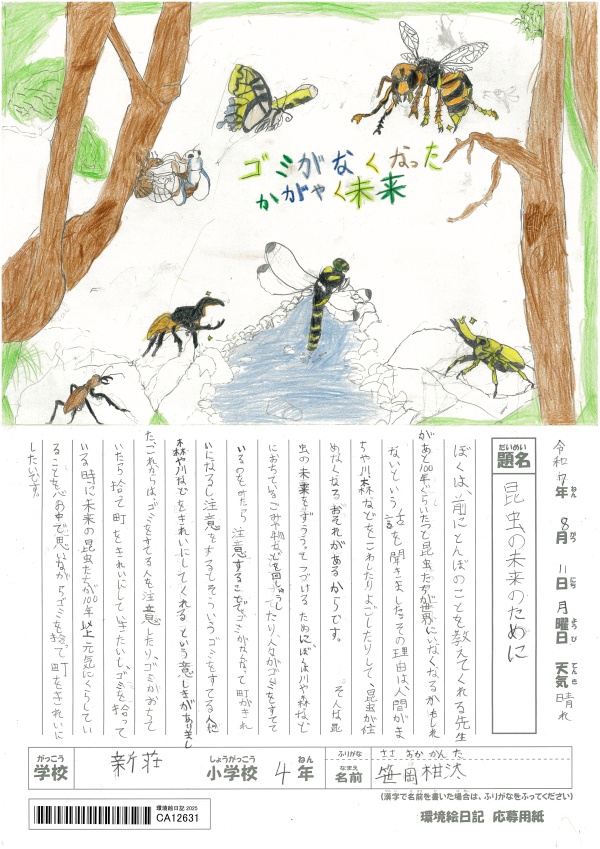 ゴミがなくなった
かがやく未来
令和7年 8月 11日 月曜日 天気 晴れ
ねん がつ にち ようび てんき
だいめい
題名
昆虫の未来のために
ぼくは、前にとんぼのことを教えてくれる先生
があと100年くらいたつと昆虫たちが世界にいなくなるかもしれ
ないという話を聞きました。その理由は、人間がま
ちや川森などをこわしたりよごしたりして、昆虫が住
めなくなるおそれがあるからです。 そんな昆
虫の未来をずうっとつづけるためにぼくは川や森など
におちているごみや をしたり人々がゴミをすてて
いるのをみたら注意することでゴミがなくなって町がきれ
いになるし注意をするとそういうゴミをすてる人に
森や川などをきれいにしてくれるという意しきがありまし
た。これからは、ゴミをすてる人を注意したり、ゴミがおちて
いたら拾って町をきれいにして生たいし、ゴミを拾って
いる時に未来の昆虫たちが100年以上元気にくらしてい
ることを心の中で思いながらゴミを捨て町をきれいに
したいです。
がっこう
学校
新荘
しょうがっこう
小学校
4年
ねん
ふりがな
ささ おか かん た
なまえ
名前
笹岡柑汰
(漢字で名前を書いた場合は、ふりがなをふってください)
環境絵日記 2025
CA12631
環境絵日記 応募用紙